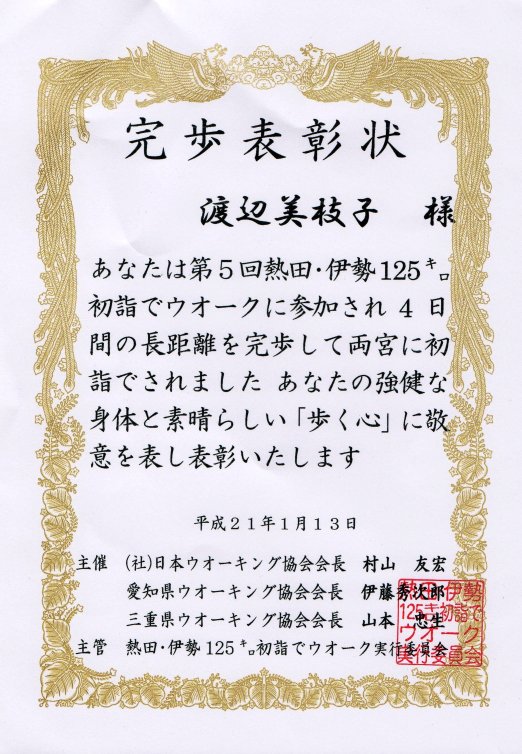 完歩表彰状
渡辺美枝子 様
あなたは第5回熱田・伊勢125㌔
初詣でウオークに参加され4日
間の長距離を完歩して両宮に初
詣でされました あなたの強健な
身体と素晴らしい「歩く心」に敬
意を表し表彰いたします
平成21年1月13日
主催 (社)日本ウオーキング協会会長 村山 友宏
愛知県ウオーキング協会会長 伊藤秀次郎
三重県ウオーキング協会会長 山本 忠生
主管 熱田・伊勢125㌔初詣でウオーク実行委員会
熱田・伊勢
125キロ初詣で
ウオーク
実行委員会